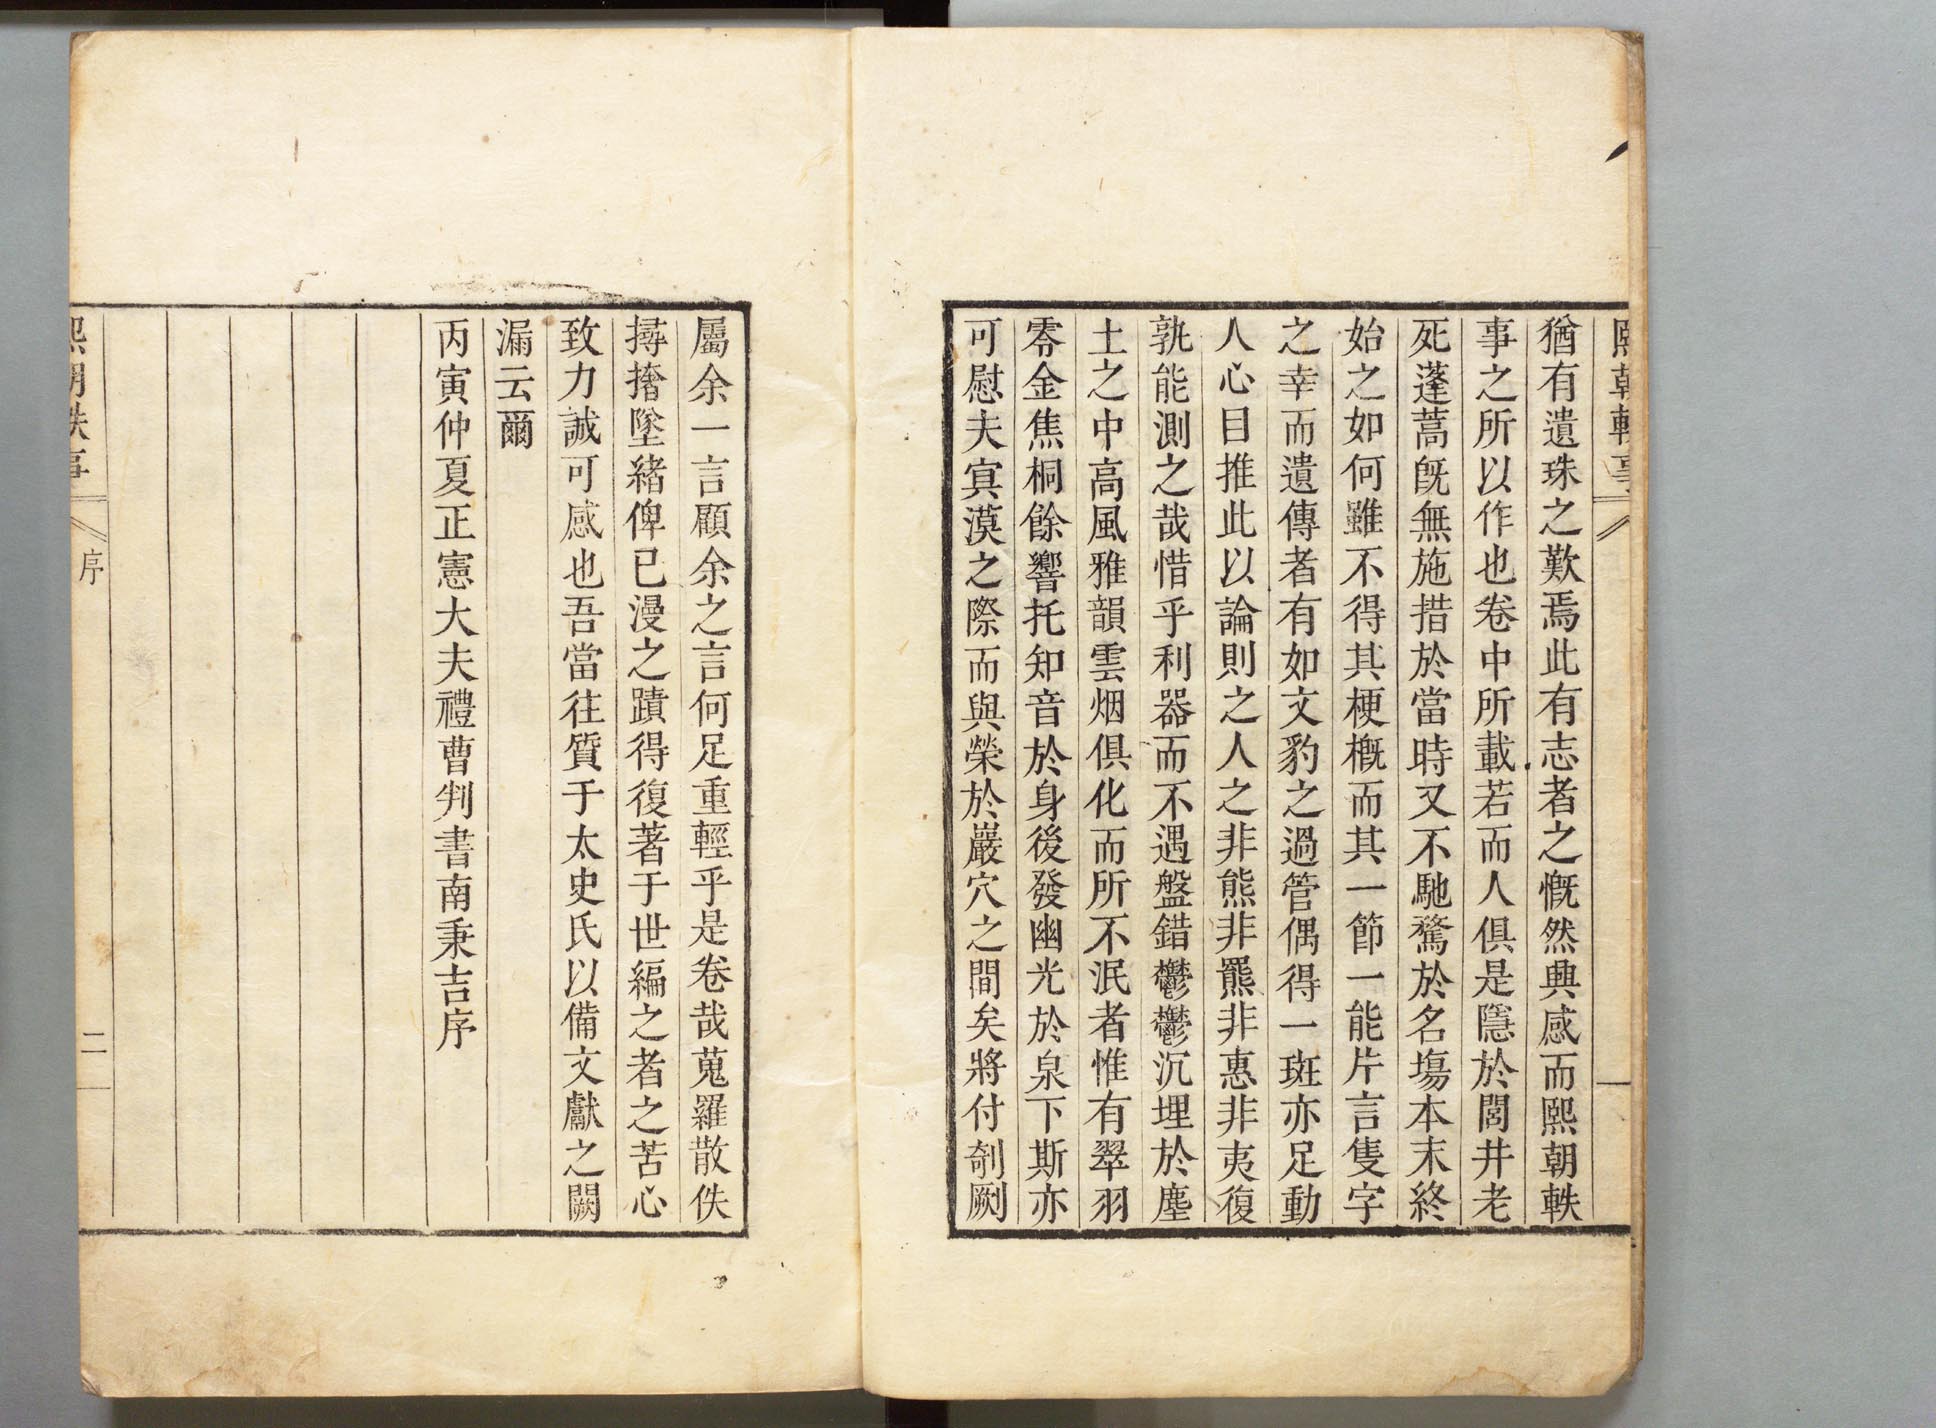 熙朝軼事
一
猶有遺珠之歎焉此有志者之慨然興感而熙朝軼
事之所以作也卷中所載若而人俱是隱於閭井老
死蓬蒿旣無施措於當時又不馳騖於名塲本末終
始之如何雖不得其梗槪而其一節一能片言隻字
之幸而遺傳者有如文豹之過管偶得一斑亦足動
人心目推此以論則之人之非熊非羆非惠非夷復
孰能測之哉惜乎利器而不遇盤錯鬱鬱沉埋於塵
土之中高風雅韻雲烟俱化而所不泯者惟有翠羽
零金焦桐餘響托知音於身後發幽光於泉下斯亦
可慰夫寞漠之際而與榮於巖穴之間矣將付剞劂
屬余一言顧余之言何足重輕乎是卷哉蒐羅散佚
撏撦墜緖俾已漫之蹟得復著于世編之者之苦心
致力誠可感也吾當往質于太史氏以備文獻之闕
漏云爾
丙寅仲夏正憲大夫禮曹判書南秉吉序
熙朝軼事
序
二